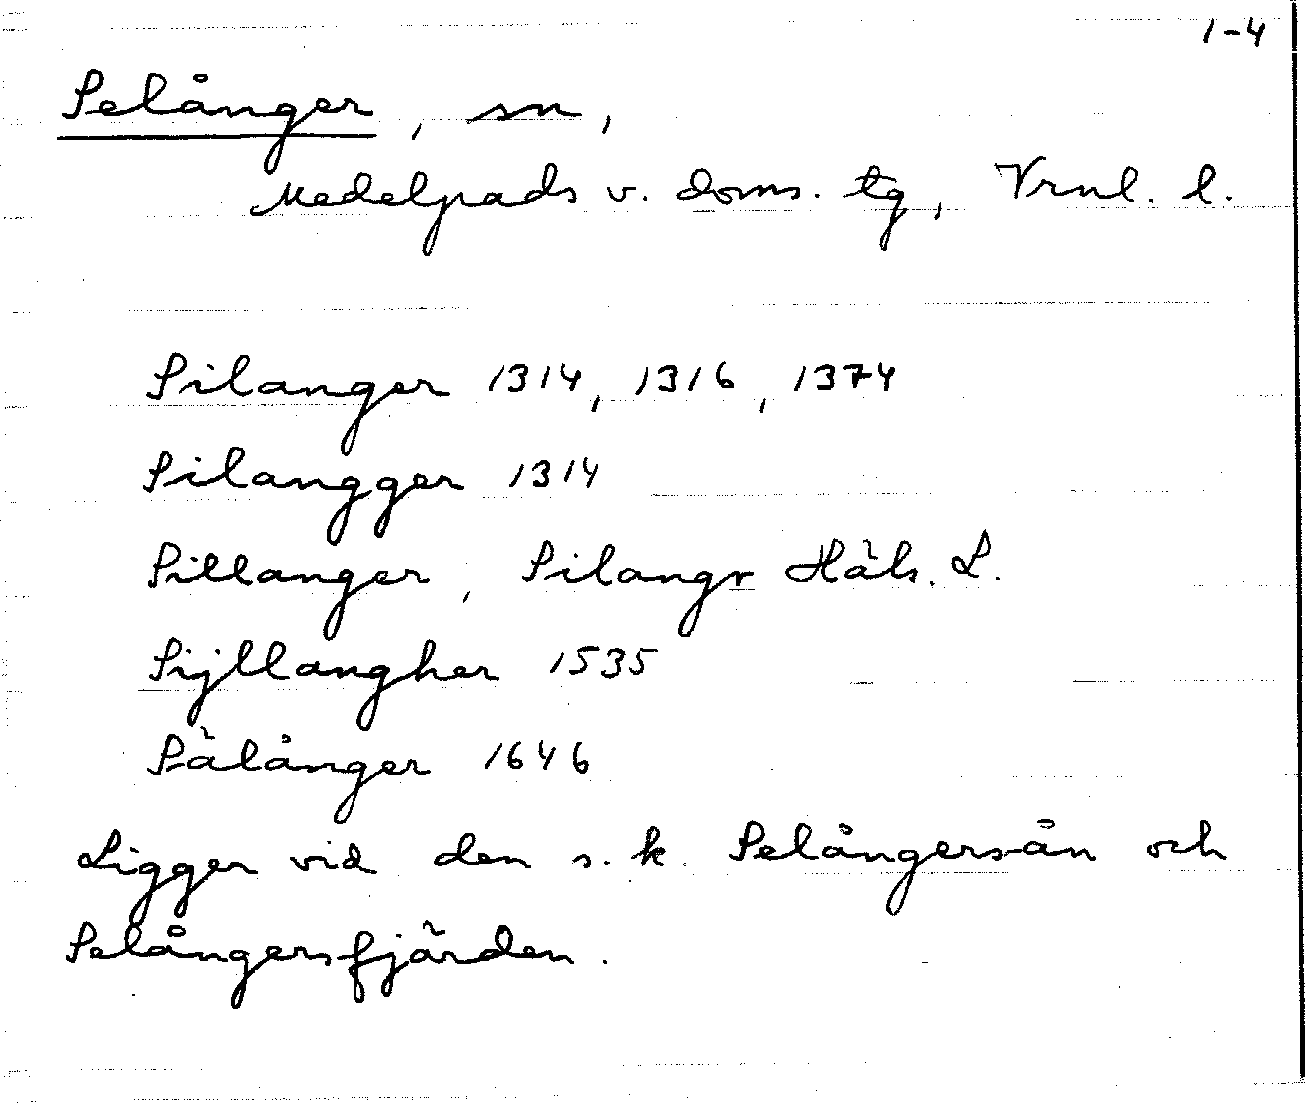 1-4
Selånger, sn,
Medelpads v. doms. tg, Vrnl. l.
Silanger 1314, 1316, 1374
Silangger 1314
Sillanger, Silangr Häls. L.
Sijllangher 1535
Sälånger 1646
Ligger vid den s. k. Selångersån och
Selångersfjärden.